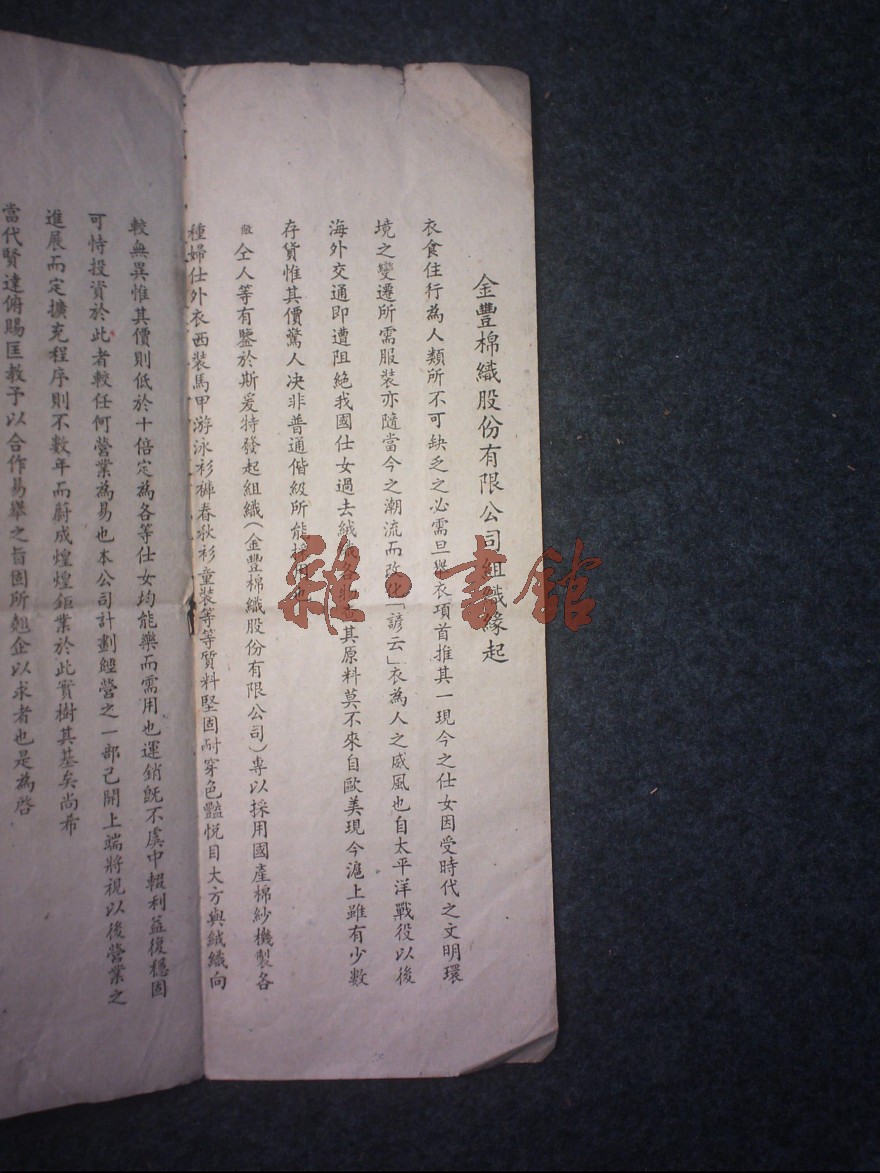 金豐棉織股份有限公司組織緣起
衣食住行為人類所不可缺乏之必需旦與衣項首推其一現今之仕女因受時代之文明環
境之變遷所需服裝亦隨當今之潮流而改化「諺云」衣為人之威風也自太平洋戰役以後
海外交通即遭阻絕我國仕女過去絨其原料莫不來自歐美現今滬上雖有少數
存貨惟其價驚人决非普通偕級所能
敝仝人等有鑒於斯爰特發起組織(金豐棉織股份有限公司)專以採用國產棉紗機製各
種婦仕外衣西裝馬甲游泳衫褲春秋衫童裝等等質料堅固耐穿色豔悅目大方與絨織向
較無異惟其價則低於十倍定為各等仕女均能樂而需用也運銷既不虞中輟利益復穩固
可恃投資於此者較任何營業為易也本公司計劃經營之一部已開上端將視以後營業之
進展而定擴充程序則不數年而蔚成煌煌鉅業於此實樹其基矣尚希
當代賢達俯賜匡教予以合作易舉之旨固所翹企以求者也是為啓
雜·書館